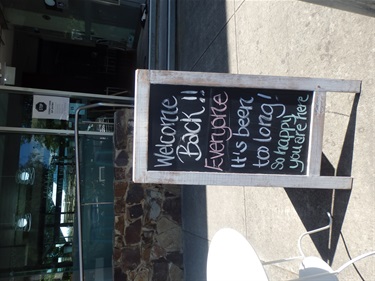 Welcome
Back!!
Everyone
It's been
too long!
So happy
you are here